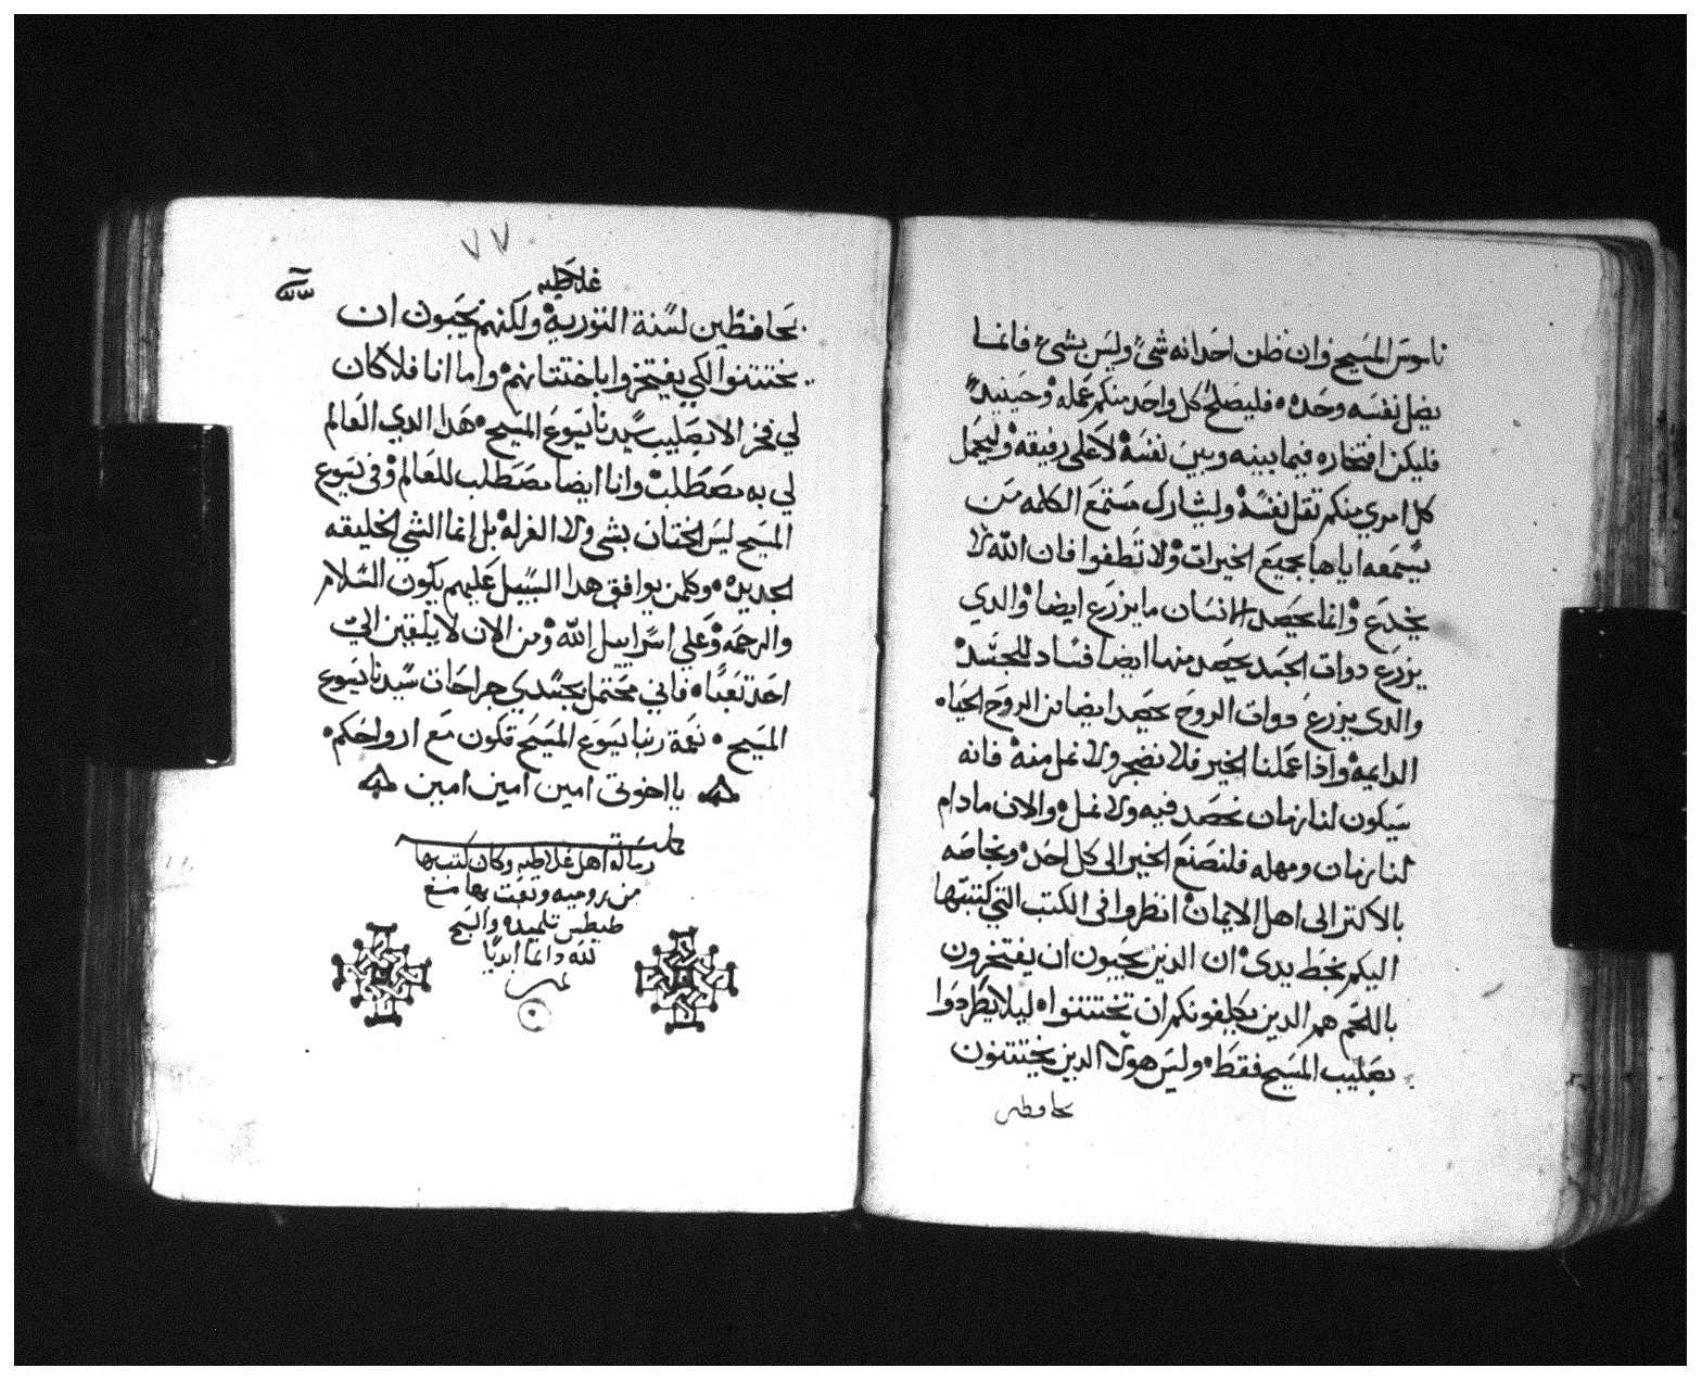 ناموس المسيح وان ظن احد انه شئ وليس بشئ فانما
يضل نفسه وحده فليصلح كل واحد منكم عمله وحينيد
فليكن افتخاره فيما بينه وبين نفسه لا على رفيقه وليحمل
كل امري منكم تقل نفسه وليشارك مستمع الكلمه من
يسمعه اياها بجميع الخيرات ولا تطغوا فان الله لا
يخدع وانما يحصد الانسان ما يزرع ايضا والدي
يزرع دوات الجسد يحصد منها ايضا فساد للجسد
والدى يزرع دوات الروح يحصد ايضا من الروح الحياه
الدايمه واذا عملنا الخير فلا نضجر ولا نمل منه فانه
سيكون لنا زمان نحصد فيه ولا نمل والان مادام
لنا زمان ومهله فلنصنع الخير الى كل احد وبخاصه
بالاكتر الى اهل الايمان انظروا فى الكتب التي كتبتها
اليكم بخط يدى ان الدين يحبون ان يفتخرون
باللحم هم الدين يكلفونكم ان تختتنوا ليلا يطردوا
بصليب المسيح فقط وليس هولا الدين يختتنون
محافظين
٧٧
غلاطيه
محافظين لسنة التوريه ولكنهم يحبون ان
تختتنوا لكي يفتخروا باختتانهم واما انا فلا كان
لي فخر الا بصليب سيدنا يسوع المسيح هدا الدي العالم
لي به مصطلب وانا ايضا مصطلب للعالم وفى يسوع
المسيح ليس الختان بشي ولا الغرله بل انما الشي الخليقه
الجديده وكلمن يوافق هدا السبيل عليهم يكون السلام
والرحمه وعلي اسراييل الله ومن الان لا يلقين الي
احد تعبا فاني محتمل بجسدي جراحات سيدنا يسوع
المسيح نعمة ربنا يسوع المسيح تكون مع ارواحكم
يا اخوتى امين امين امين
كملت
رسالة اهل غلاطيه وكان كتبها
من روميه وبعت بها مع
طيطس تلميده والسبح
لله دايما ابديا